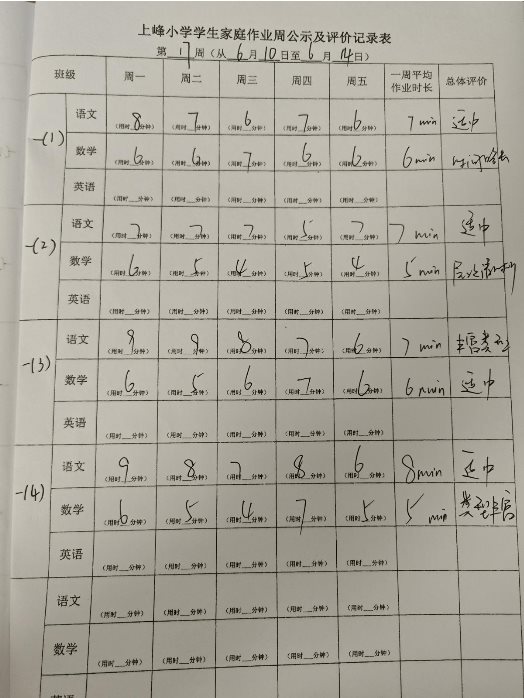 上峰小学学生家庭作业周公示及评价记录表
第 17 周（从 6 月 10 日至 6 月 14 日）
班级 周一 周二 周三 周四 周五 一周平均作业时长 总体评价
一(1) 语文 （用时 8 分钟） （用时 7 分钟） （用时 6 分钟） （用时 7 分钟） （用时 6 分钟） 7 min 适中
数学 （用时 6 分钟） （用时 6 分钟） （用时 7 分钟） （用时 6 分钟） （用时 6 分钟） 6 min
英语 （用时__分钟） （用时__分钟） （用时__分钟） （用时__分钟） （用时__分钟）
一(2) 语文 （用时 7 分钟） （用时 7 分钟） （用时 7 分钟） （用时 5 分钟） （用时 7 分钟） 7 min 适中
数学 （用时 6 分钟） （用时 5 分钟） （用时 4 分钟） （用时 5 分钟） （用时 4 分钟） 5 min
英语 （用时__分钟） （用时__分钟） （用时__分钟） （用时__分钟） （用时__分钟）
一(3) 语文 （用时 9 分钟） （用时 9 分钟） （用时 8 分钟） （用时 7 分钟） （用时 6 分钟） 7 min 丰富类型
数学 （用时 6 分钟） （用时 5 分钟） （用时 6 分钟） （用时 7 分钟） （用时 6 分钟） 6 min 适中
英语 （用时__分钟） （用时__分钟） （用时__分钟） （用时__分钟） （用时__分钟）
一(4) 语文 （用时 9 分钟） （用时 8 分钟） （用时 7 分钟） （用时 8 分钟） （用时 6 分钟） 8 min 适中
数学 （用时 6 分钟） （用时 5 分钟） （用时 4 分钟） （用时 7 分钟） （用时 5 分钟） 5 min 类型丰富
英语 （用时__分钟） （用时__分钟） （用时__分钟） （用时__分钟） （用时__分钟）
语文 （用时__分钟） （用时__分钟） （用时__分钟） （用时__分钟） （用时__分钟）
数学 （用时__分钟） （用时__分钟） （用时__分钟） （用时__分钟） （用时__分钟）
英语